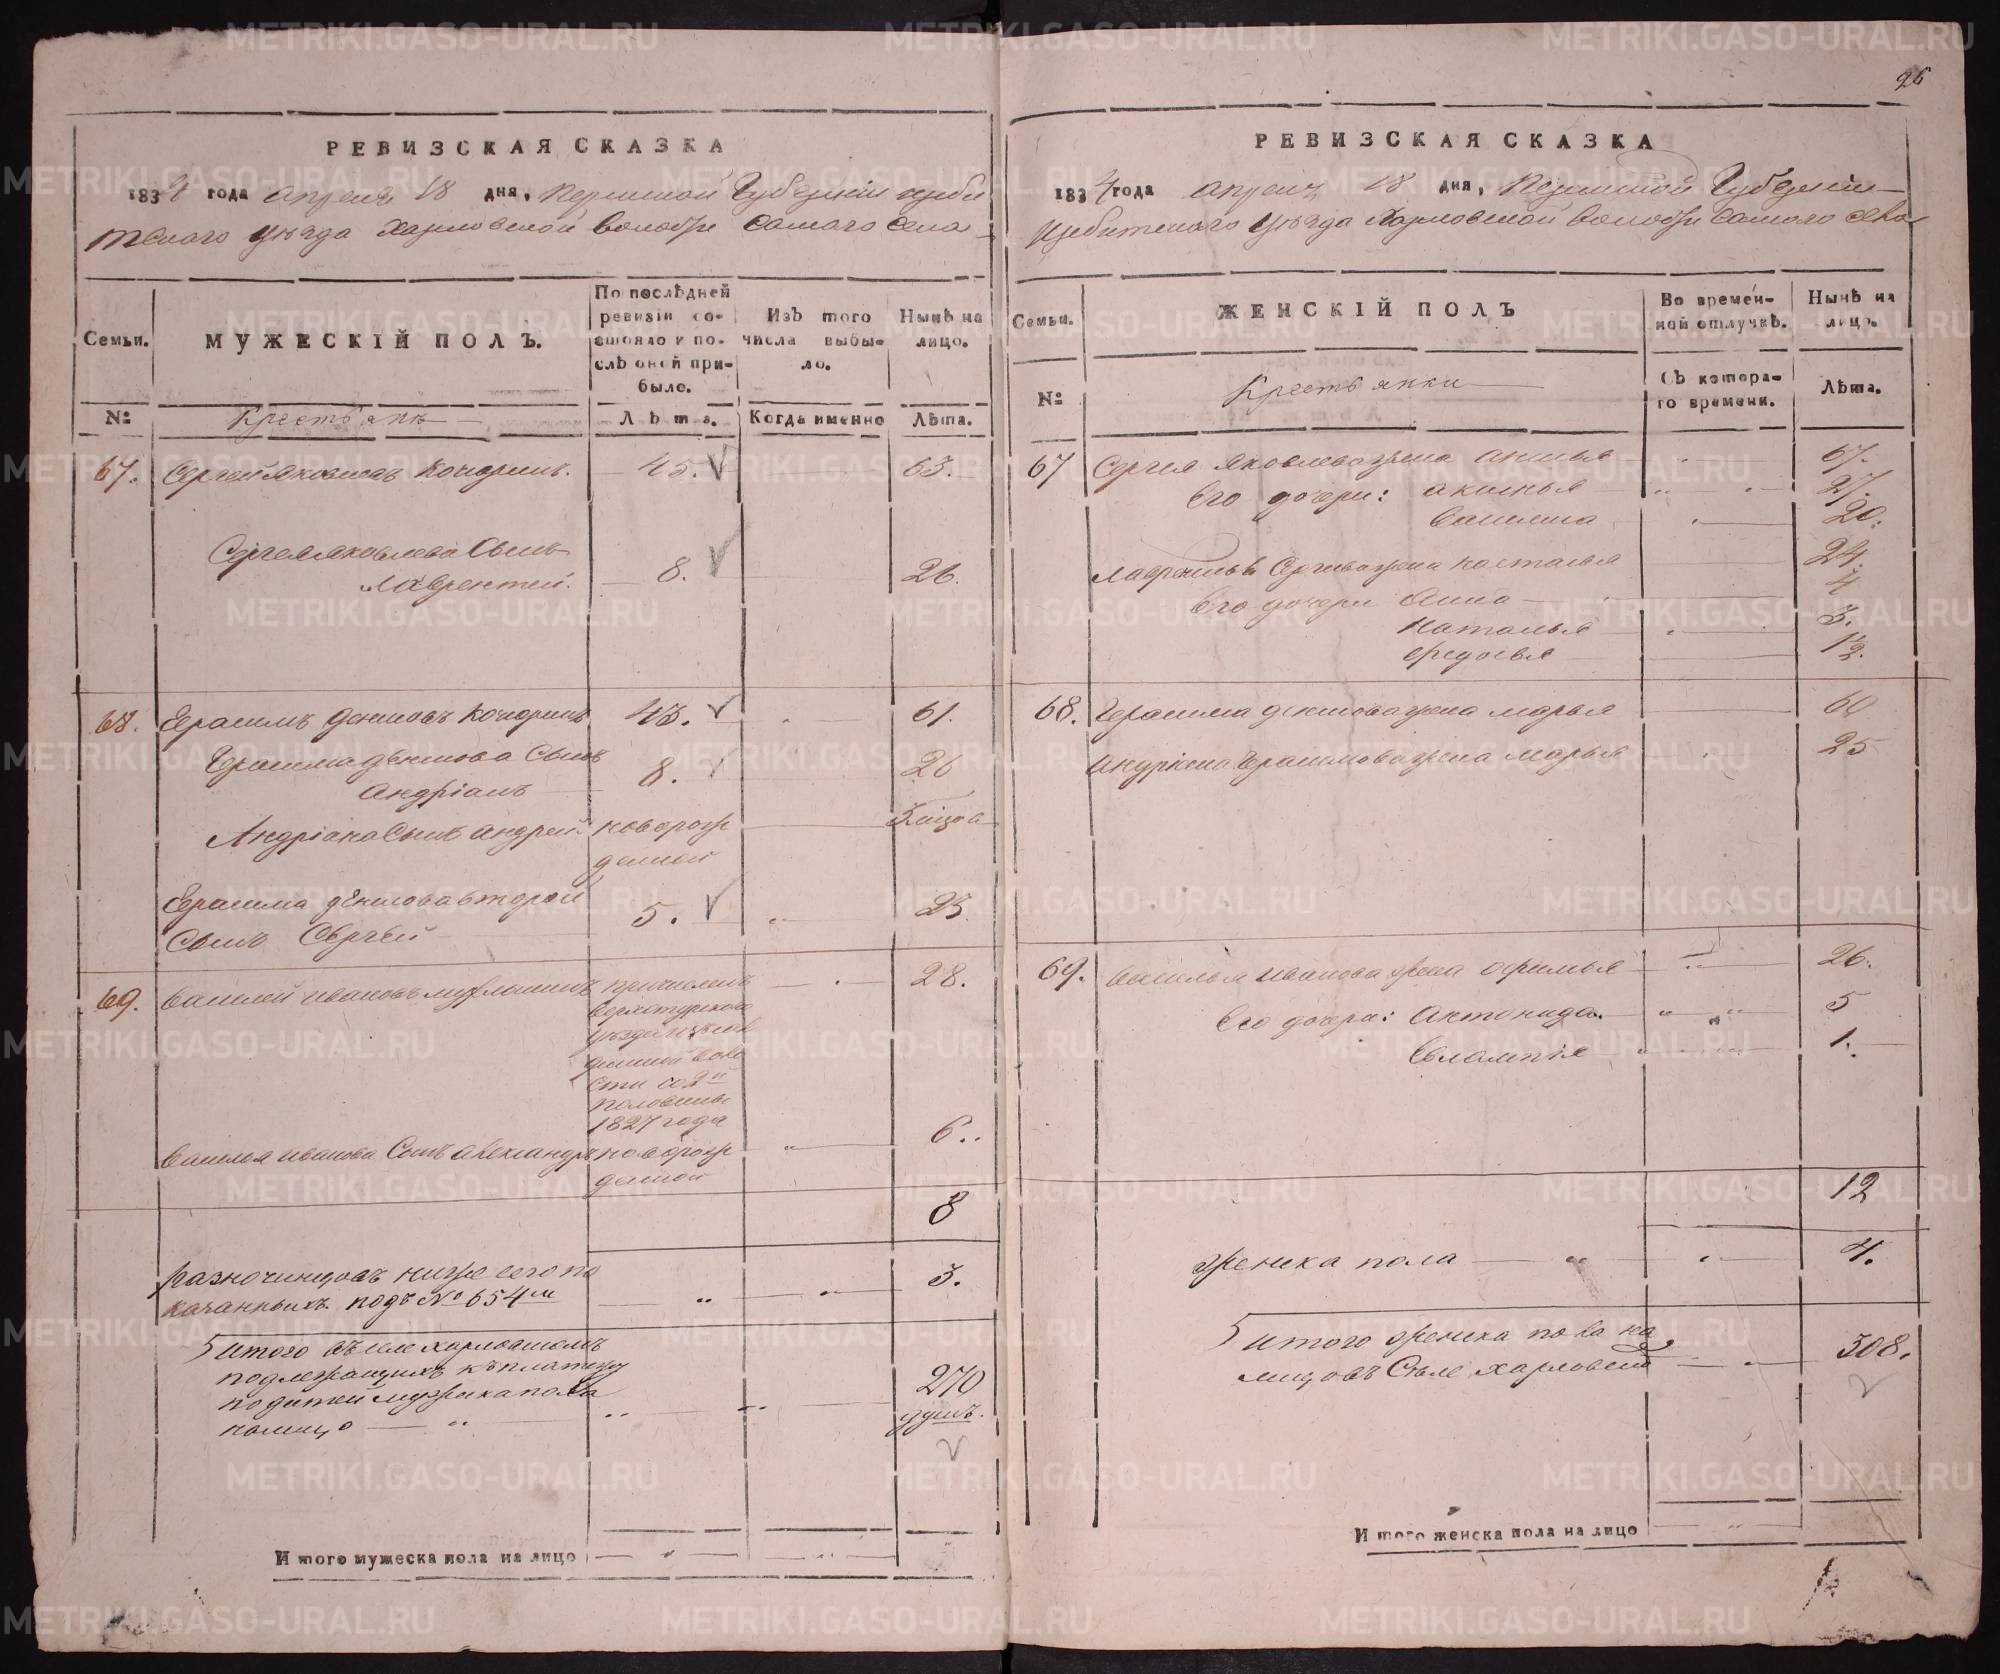 26
РЕВИЗСКАЯ СКАЗКА
1834 года апреля 18 дня, Пермской Губернiи Ирби
тскаго уѣзда Харловской волости самаго села
Семьи.
МУЖЕСКІЙ ПОЛЪ.
По послѣдней ревизіи состояло и послѣ оной прибыло.
Изъ того числа выбыло.
Нынѣ на лицо.
№
Крестьянъ
Лѣта.
Когда именно
Лѣта.
67. Сергей Яковлевъ Кочуринъ. 45. 63.
Сергея Яковлева Сынъ
Лаврентей. 8. 26.
68. Герасимъ Денисовъ Кочуринъ 43. 61.
Герасима Денисова Сынъ
Андріанъ 8. 26
Андріана Сынъ Андрей новорож
денной
Герасима Денисова второй
Сынъ Сергѣй 5. 23.
69. Василей Ивановъ причисленъ 28.
Верхотурскаго
уѣзда
сти со 2й
половины
1827 года
Василья Иванова Сынъ Александръ новорож 6.
денной
8
Разночинцовъ ниже сего по
казанныхъ подъ № 654м 3.
Итого въ селе Харловскомъ
подлежащихъ къ платежу
податей мужска пола
налицо 270
душъ.
Итого мужеска пола на лицо
РЕВИЗСКАЯ СКАЗКА
1834 года апреля 18 дня, Пермской Губернiи
Ирбитскаго уѣзда Харловской волости самаго села
Семьи.
ЖЕНСКІЙ ПОЛЪ
Во временной отлучкѣ.
Нынѣ на лицо.
№
Крестьянки
Съ котораго времени.
Лѣта.
67 Сергея Яковлева жена Анна 67.
Его дочери: Акилина 27.
Василиса 20.
Лаврентья Сергеева жена Наталья 24.
Его дочери Анна 4
Наталья 3.
Федосья 1/2.
68. Герасима Денисова жена Марья 60
Андріяна Герасимова жена Марья 25
69. Василья Иванова жена Офимья 26.
Его дочери: Антонида 5
Евлампія 1.
12
Женска пола 4.
Итого женска пола на
лицо въ Селе Харловском 308.
Итого женска пола на лицо
METRIKI.GASO-URAL.RU